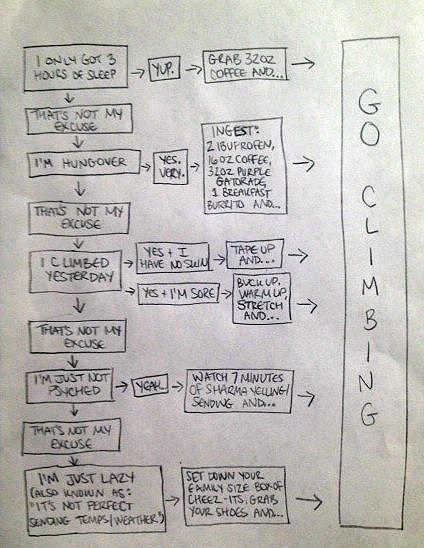 I ONLY GOT 3
HOURS OF SLEEP
YUP.
GRAB 32OZ
COFFEE AND...
THAT'S NOT MY
EXCUSE
I'M HUNGOVER
YES.
VERY.
INGEST:
2 IBUPROFEN,
16OZ COFFEE,
32OZ PURPLE
GATORADE,
1 BREAKFAST
BURRITO AND...
THAT'S NOT MY
EXCUSE
I CLIMBED
YESTERDAY
YES + I
HAVE NO SKIN
TAPE UP
AND...
YES + I'M SORE
BUCK UP,
WARM UP,
STRETCH
AND...
THAT'S NOT MY
EXCUSE
I'M JUST NOT
PSYCHED
YEAH.
WATCH 7 MINUTES
OF SHARMA YELLING/
SENDING AND...
THAT'S NOT MY
EXCUSE
I'M JUST LAZY
(ALSO KNOWN AS:
"IT'S NOT PERFECT
SENDING TEMPS/WEATHER")
SET DOWN YOUR
FAMILY SIZE BOX OF
CHEEZ-ITS, GRAB
YOUR SHOES AND...
GO CLIMBING